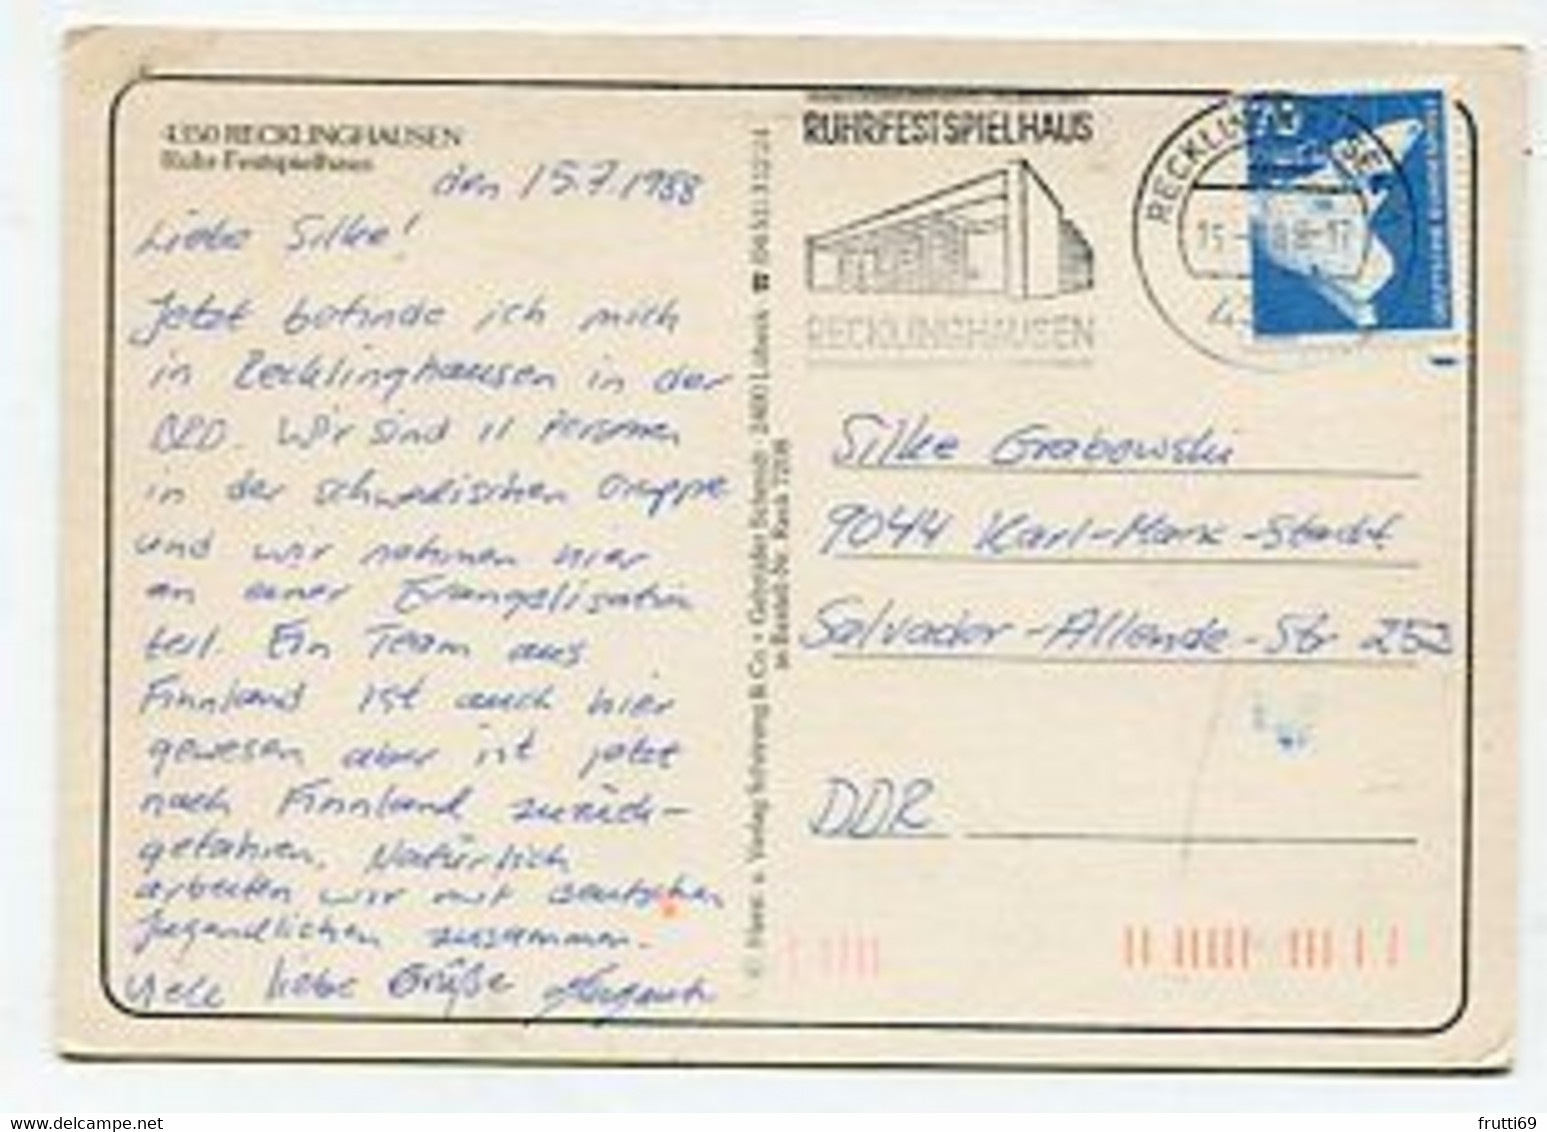 4350 RECKLINGHAUSEN
Ruhr-Festspielhaus
den 15.7.1988
Liebe Silke!
Jetzt befinde ich mich
in Recklinghausen in der
BRD. Wir sind 11 Personen
in der schwedischen Gruppe
und wir nehmen hier
an einer Evangelisation
teil. Ein Team aus
Finnland ist auch hier
gewesen aber ist jetzt
nach Finnland zurück-
gefahren. Natürlich
arbeiten wir mit deutschen
Jugendlichen zusammen.
Liebe Grüße
Verlag Schöning & Co · Gebrüder Schmidt · 2400 Lübeck ☎
RUHRFESTSPIELHAUS
RECKLINGHAUSEN
RECKLINGHAUSE
70
Silke Grabowski
9044 Karl-Marx-Stadt
Salvador-Allende-Str 252
DDR
frutti69